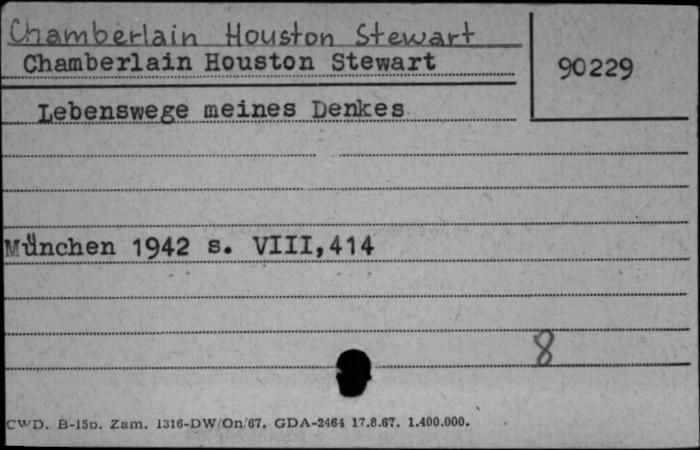 Chamberlain Houston Stewart
Chamberlain Houston Stewart
90229
Lebenswege meines Denkes
München 1942 s. VIII,414
8
CWD. B-15b. Zam. 1316-DW/On/67. GDA-2464 17.8.67. 1.400.000.